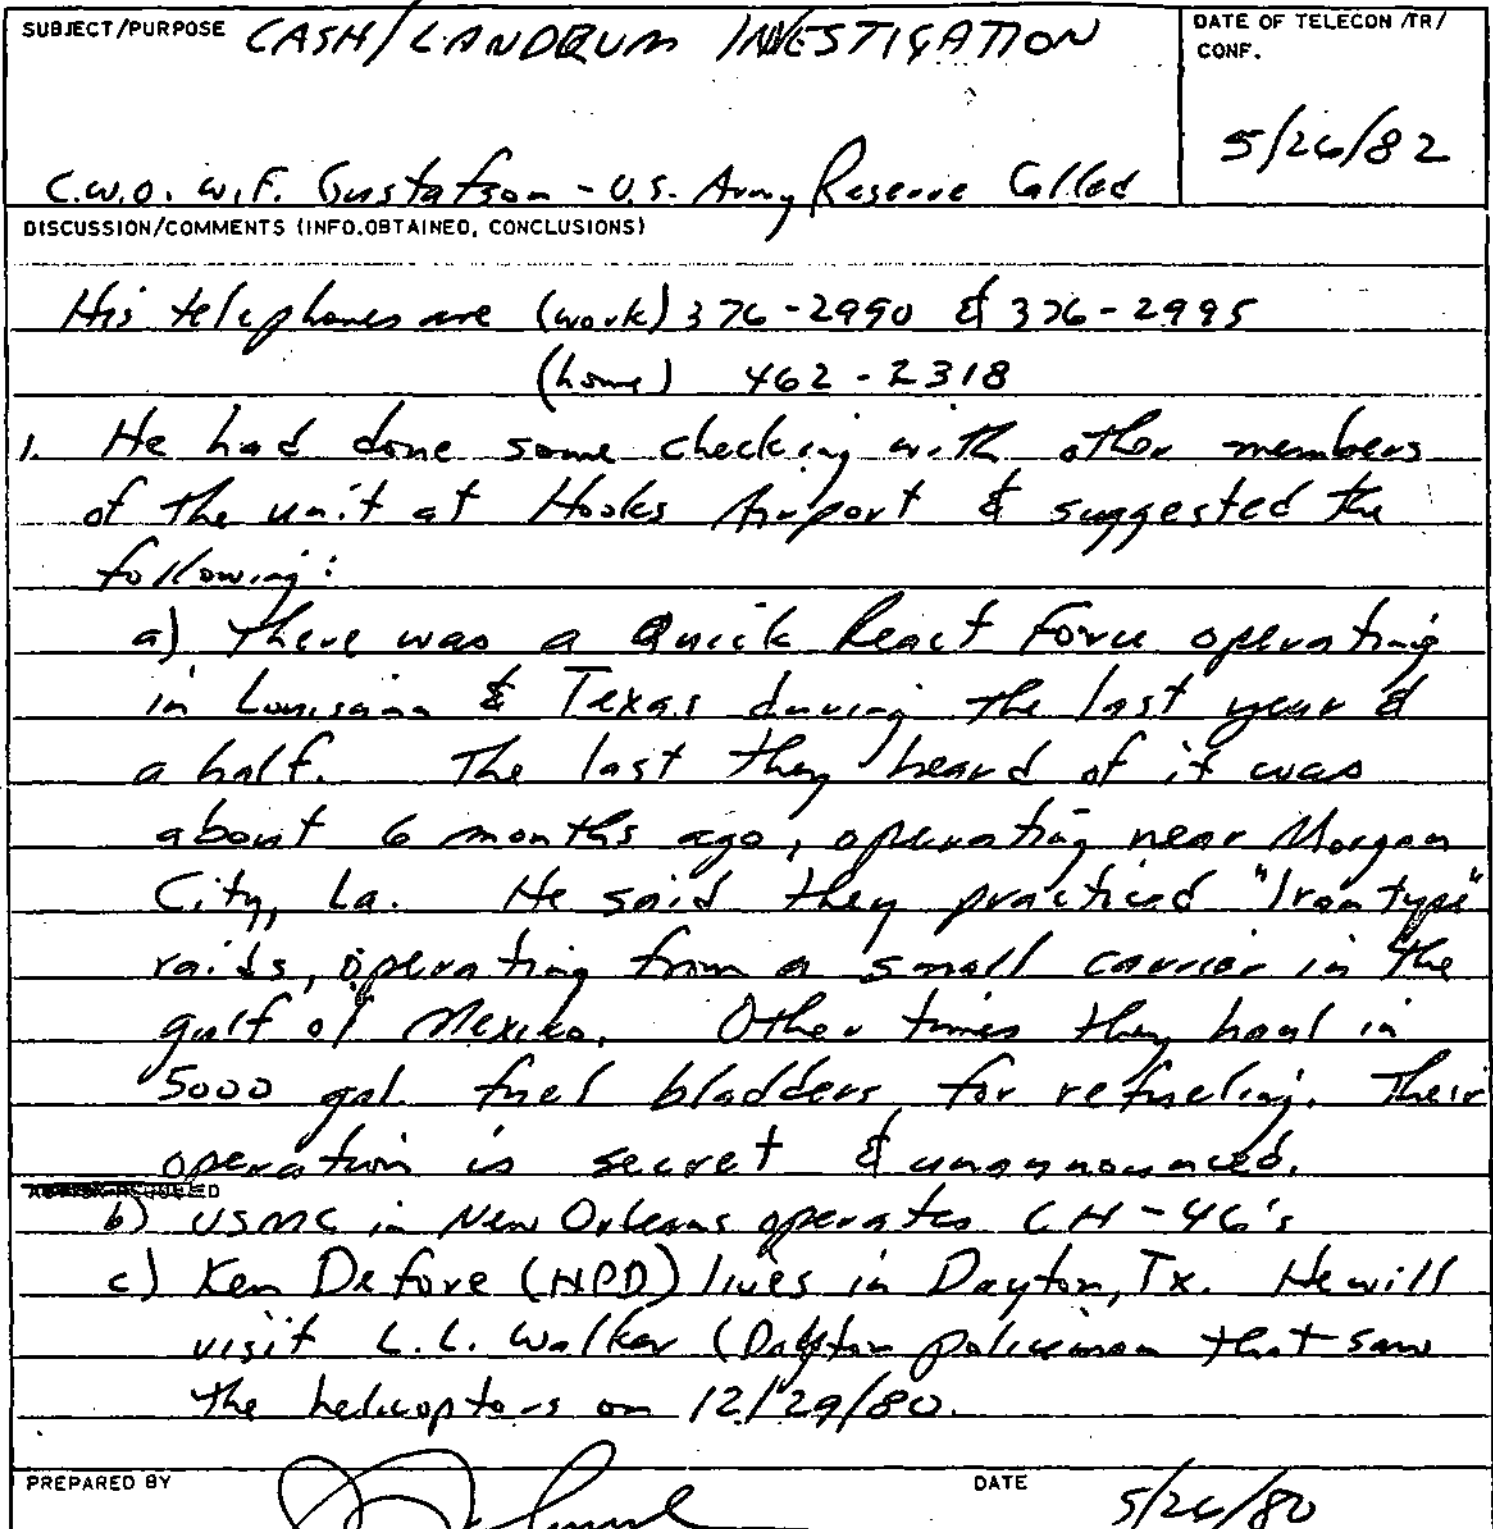 SUBJECT/PURPOSE CASH/LANDRUM INVESTIGATION
DATE OF TELECON /TR/
CONF.
5/26/82
C.W.O. W.F. Gustafson - U.S. Army Reserve Called
DISCUSSION/COMMENTS (INFO.OBTAINED, CONCLUSIONS)
His telephones are (work) 376-2990 & 376-2995
(home) 462-2318
1. He had done some checking with other members
of the unit at Hooks Airport & suggested the
following:
a) There was a Quick React Force operating
in Louisiana & Texas during the last year &
a half. The last they heard of it was
about 6 months ago, operating near Morgan
City, La. He said they practiced "Iran type"
raids, operating from a small carrier in the
gulf of Mexico. Other times they haul in
5000 gal. fuel bladders for refueling. Their
operation is secret & unannounced.
b) USMC in New Orleans operates CH-46's
c) Ken Defore (HPD) lives in Dayton, Tx. He will
visit L.L. Walker (Dayton policeman that saw
the helicoptors on 12/29/80.
PREPARED BY
DATE 5/26/80